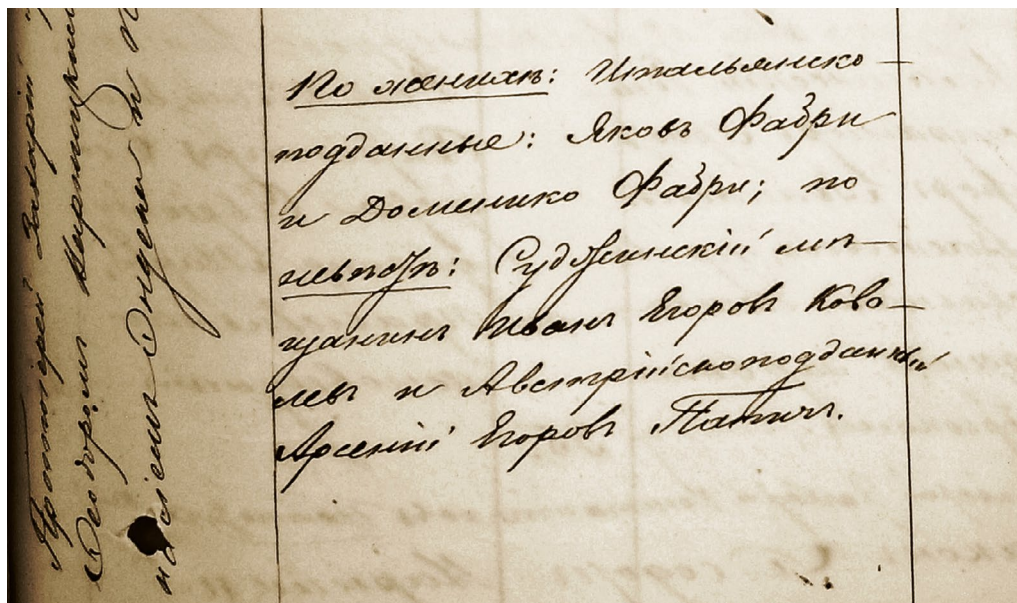 Протоіерей Захарій
Ѳеодоромъ
По женихѣ: Итальянско-
подданные: Яковъ Фабри
и Доменико Фабри; по
невѣстѣ: Суджинскій мѣ-
щанинъ Иванъ Егоровъ Кова-
левъ и Австрійскоподданный
Арсеній Егоровъ Патичъ.